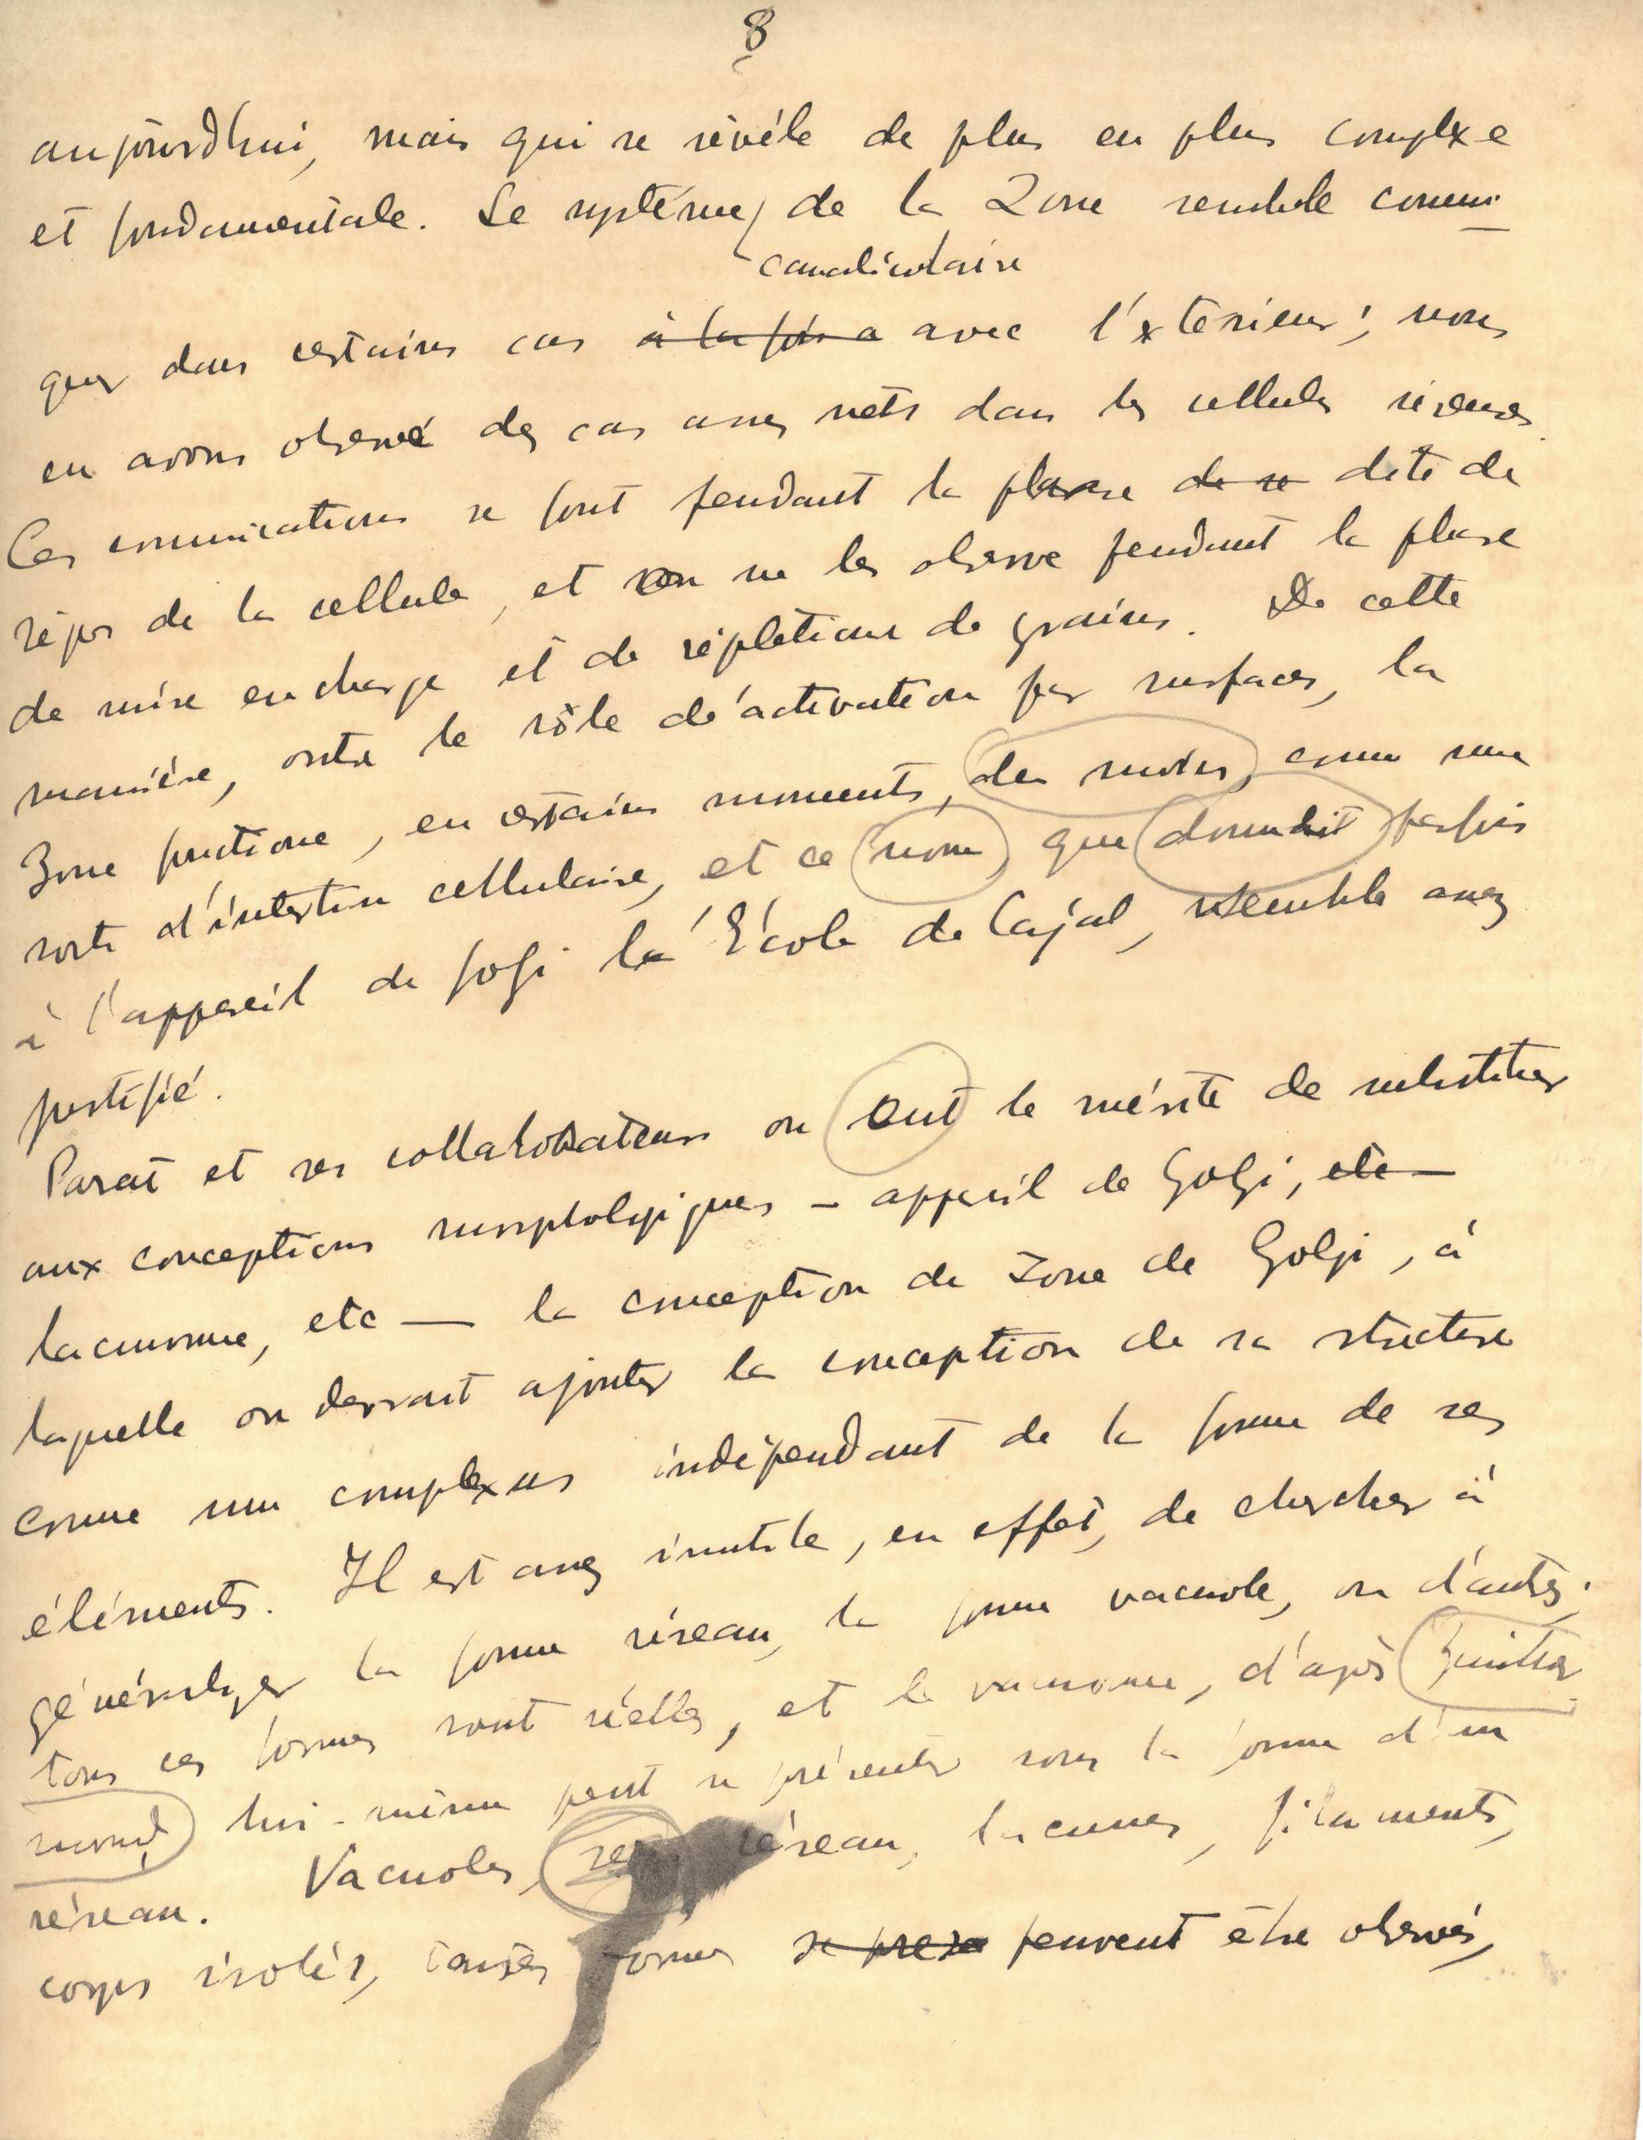 8
aujourdhui, mais qui se révéle de plus en plus complexe
et fondamentale. Le systéme de la Zone semble communi
canaliculaire
quer dans certains cas à la fois a avec l'exterieur; nous
en avons observé des cas assez nets dans les cellules séreuses.
Ces comunications se font pendant la phase de re dite de
répos de la cellule, et on ne les observe pendant la phase
de mise en charge et de répletion de grains. De cette
manière, outre le rôle de d'activation par surfaces, la
Zone fonctione, en certains moments, des moins comme une
sorte d'intestin cellulaire, et ce nom que donnait parfois
à l'appareil de golgi la l'École de Cajal, semble assez
justifié.
Parat et ses collaborateurs on eut le mérite de substituer
aux conceptions morphologiques — appareil de Golgi, etc —
lacunome, etc — la conception de zone de Golgi, à
laquelle on devrait ajouter la conception de sa structure
comme un complexus indépendant de la forme de ses
éléments. Il est assez inutile, en effet, de chercher à
généraliser la forme réseau, la forme vacuole, ou d'autres;
tous ces formes sont réelles, et le vacuome, d'après Guillier
mond, lui-même peut se présenter sous la forme d'un
réseau. Vacuoles, res réseau, lacunes, filaments,
corps isolés, toutes formes se prese peuvent être observés,